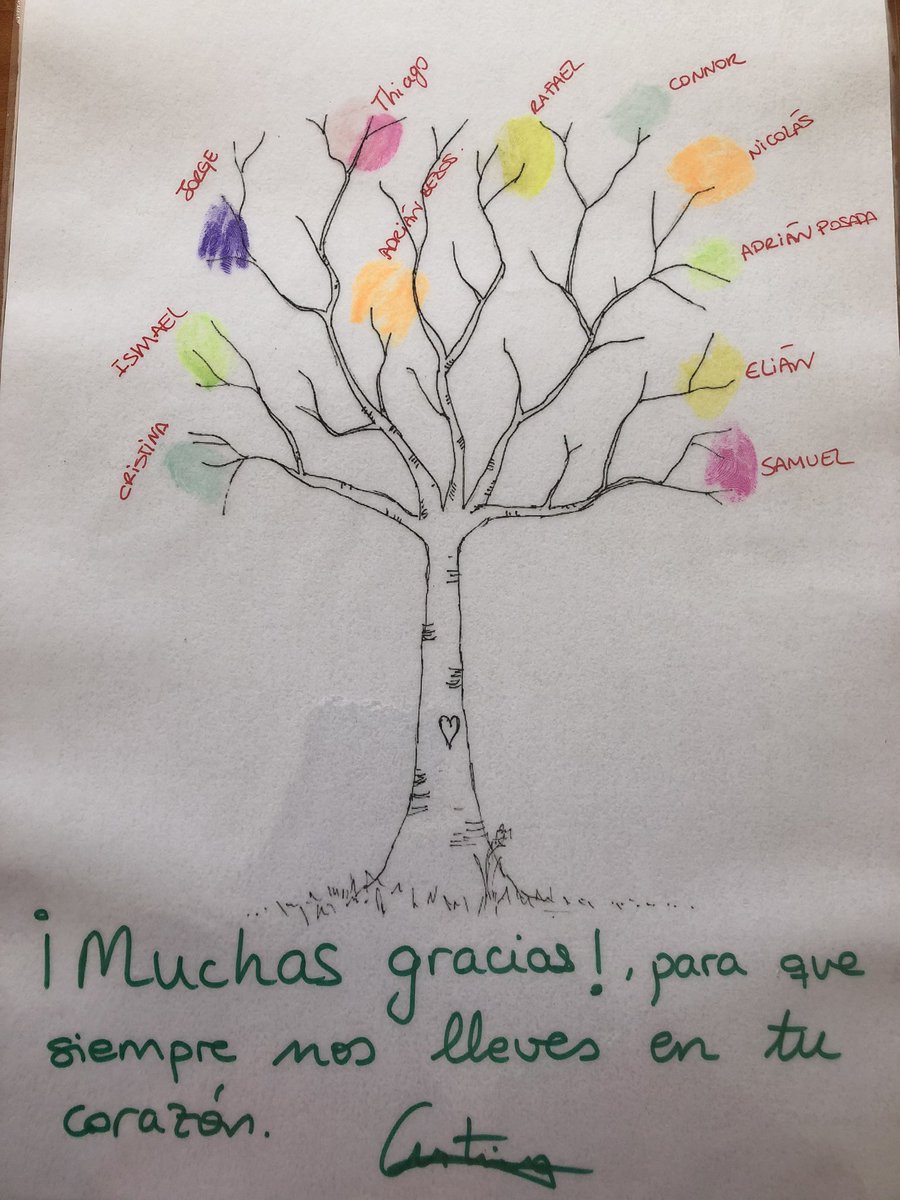 Thiago
RAFAEL
CONNOR
NICOLÁS
JORGE
ADRIÁN BEZOS.
ADRIÁN POSADA
ISMAEL
ELIÁN
CRISTINA
SAMUEL
¡Muchas gracias!, para que
siempre nos lleves en tu
corazón.
Cristina